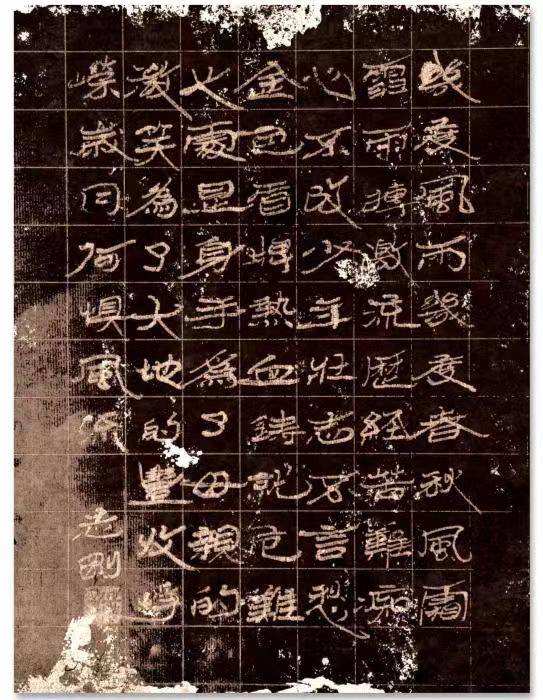 幾度風雨幾度春秋風霜
雪雨搏激流歷經苦難痴
心不改少年壯志不言愁
金色盾牌熱血鑄就危難
之處显身手為了母親的
微笑為了大地的豐收崢
嶸歲月何懼風流
志剛